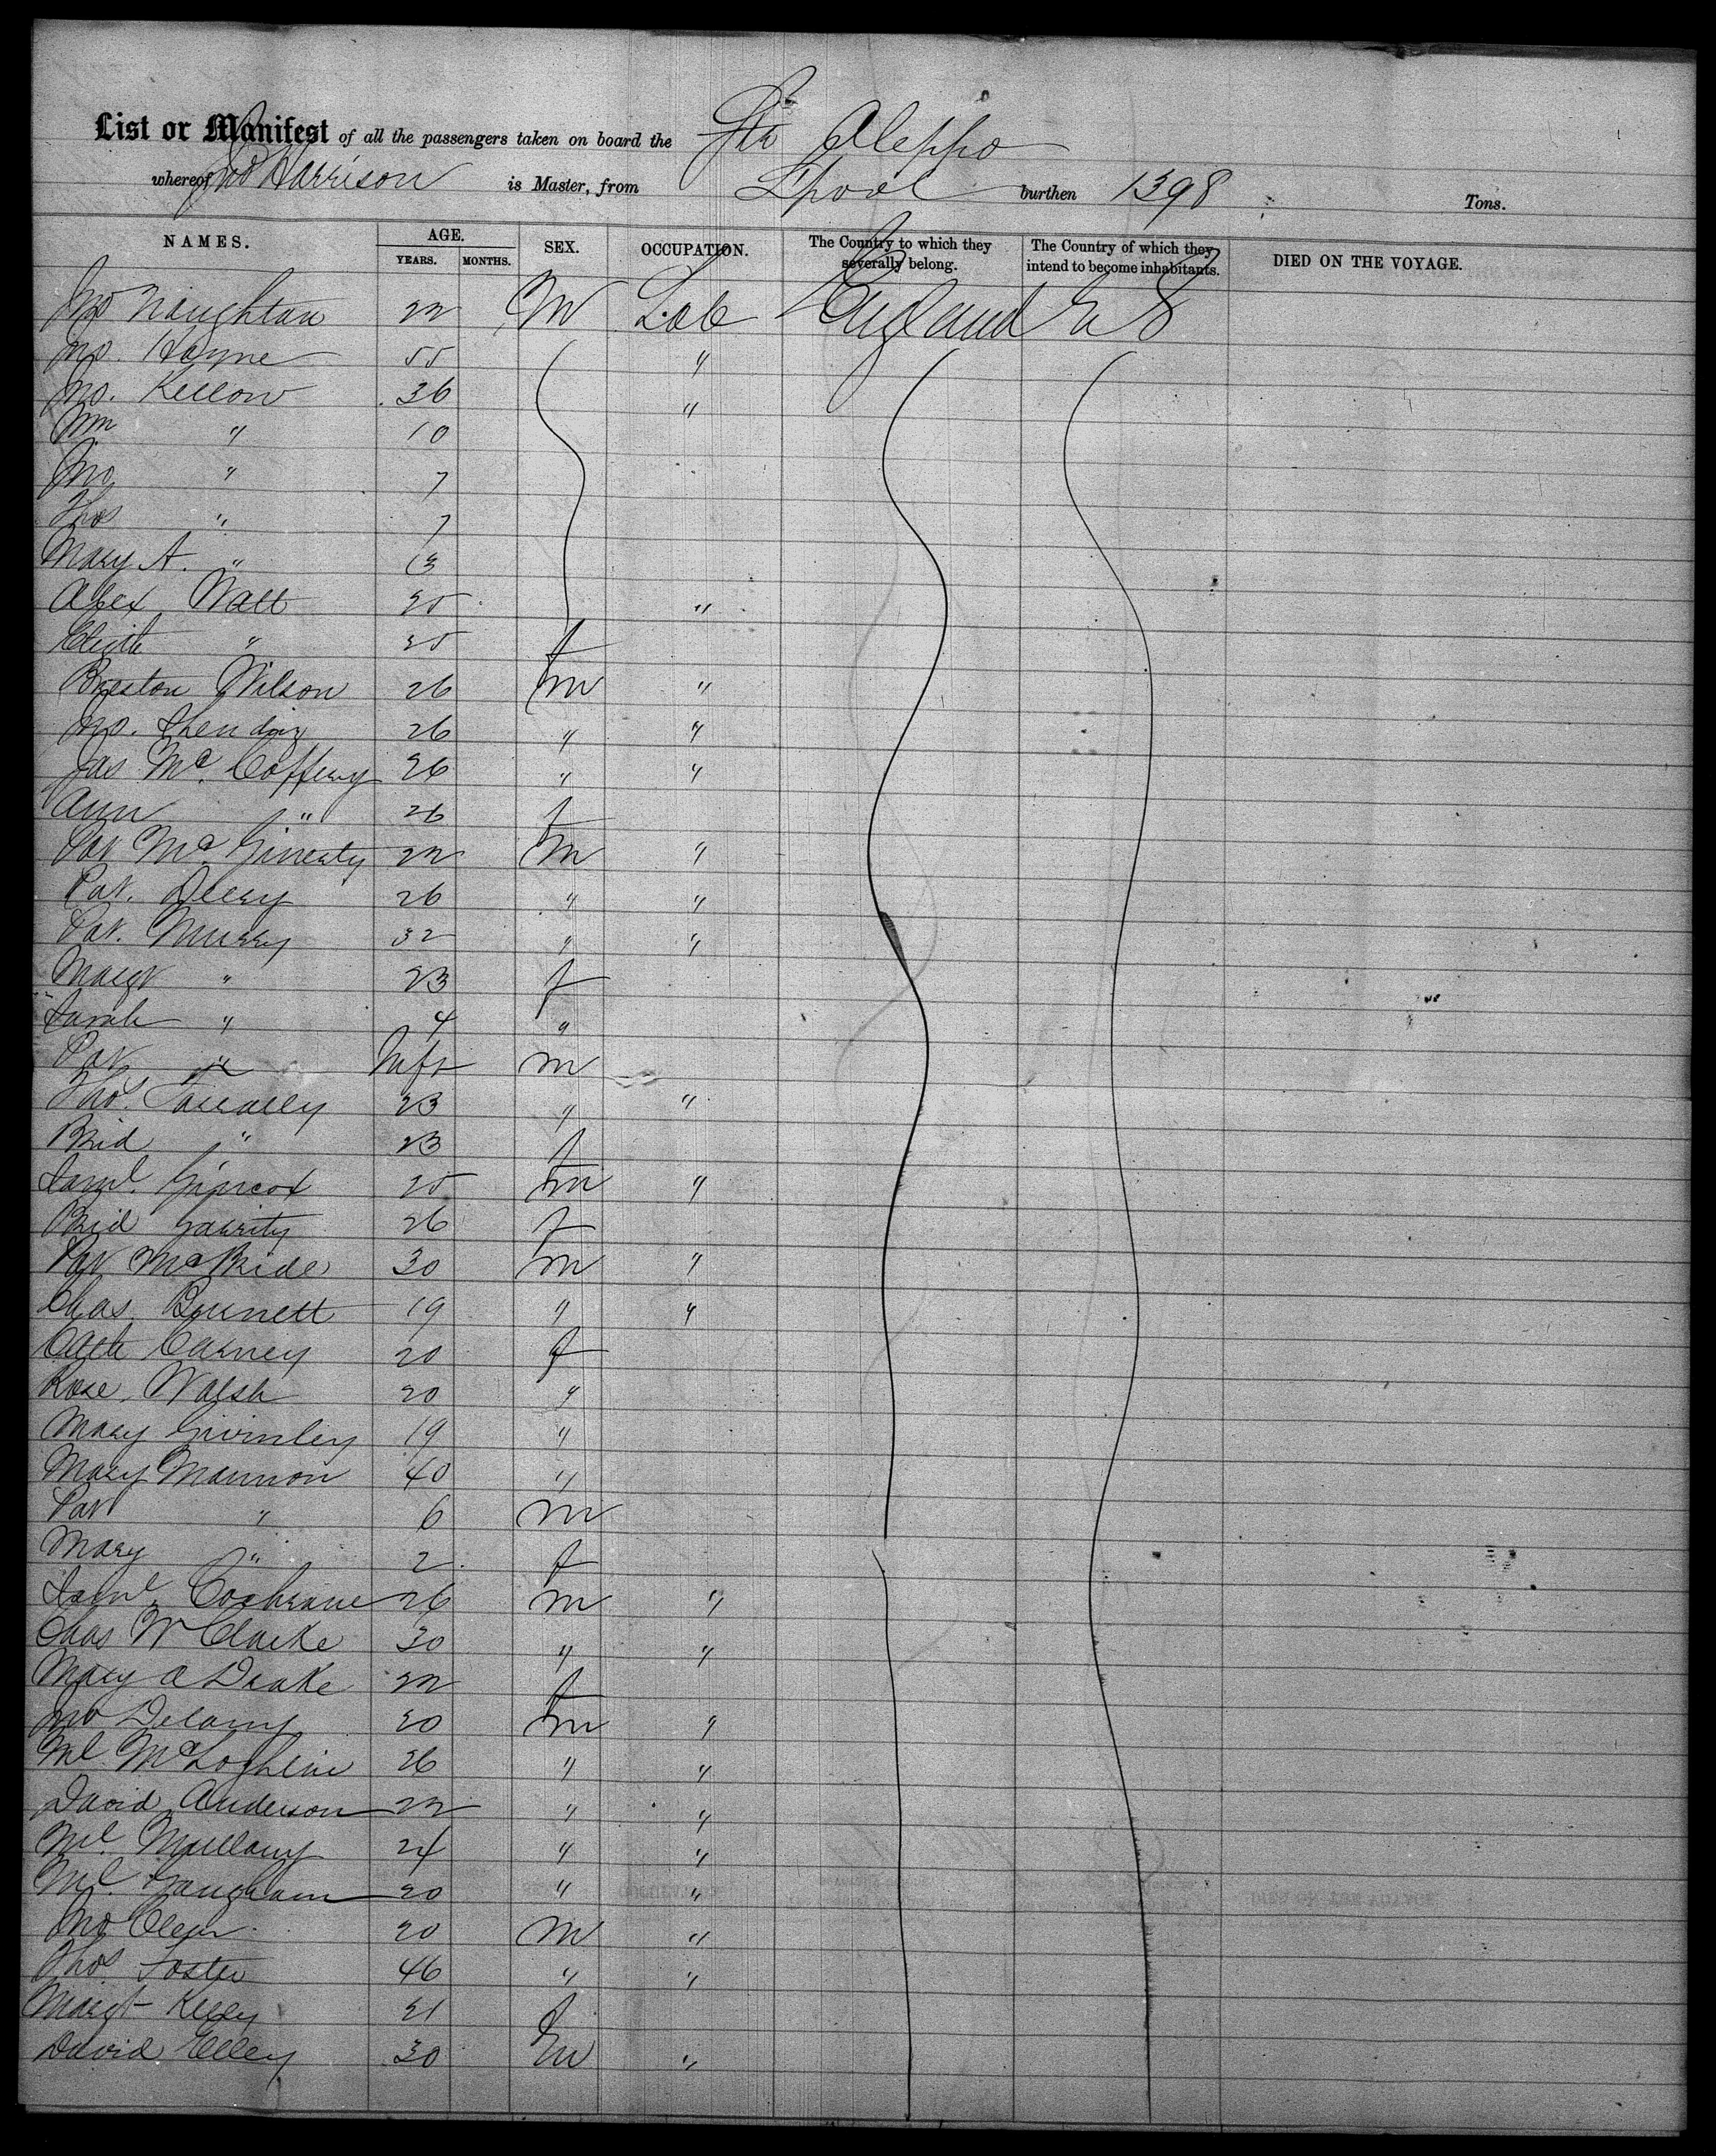 List or Manifest of all the passengers taken on board the Str Aleppo
whereof Jno Harrison is Master, from L'pool burthen 1398 Tons.
NAMES. AGE. SEX. OCCUPATION. The Country to which they severally belong. The Country of which they intend to become inhabitants. DIED ON THE VOYAGE.
YEARS. MONTHS.
Jno Naughton 22 M Lab England U S
Jno. Hayne 55 "
Jno. Kellow 36 "
Wm " 10
Jno " 7
Thos " 7
Mary A. " 13
Alex Watt 25 "
" 25 f
Preston Wilson 26 m "
Jno. 26 " "
Jas Mc. Coffery 26 " "
Ann " 26 f
Pat Mc. Ginesty 22 m "
Pat. 26 " "
Pat. Murry 32 " "
Margt " 23 f
Sarah " 4 "
Pat " Inft m
Thos. 23 " "
Brid " 23 f
Saml. 25 m "
Brid Garrity 26 f
Pat McBride 30 m "
Chas. Bennett 19 " "
Cath Carney 20 f
Rose Walsh 20 "
Mary 19 "
Mary Mannon 40 "
Pat " 6 m
Mary " 2 f
Saml. Cochrane 26 m "
Chas W Clarke 30 " "
Mary A Drake 22 f
Jno Delany 20 m "
Ml. McLoghlin 26 " "
David Anderson 22 " "
Ml. Mullany 24 " "
Ml. Gaugham 20 " "
Jno 20 M "
Thos. Foster 46 " "
Margt Kelly 21 f
David Elley 30 m "